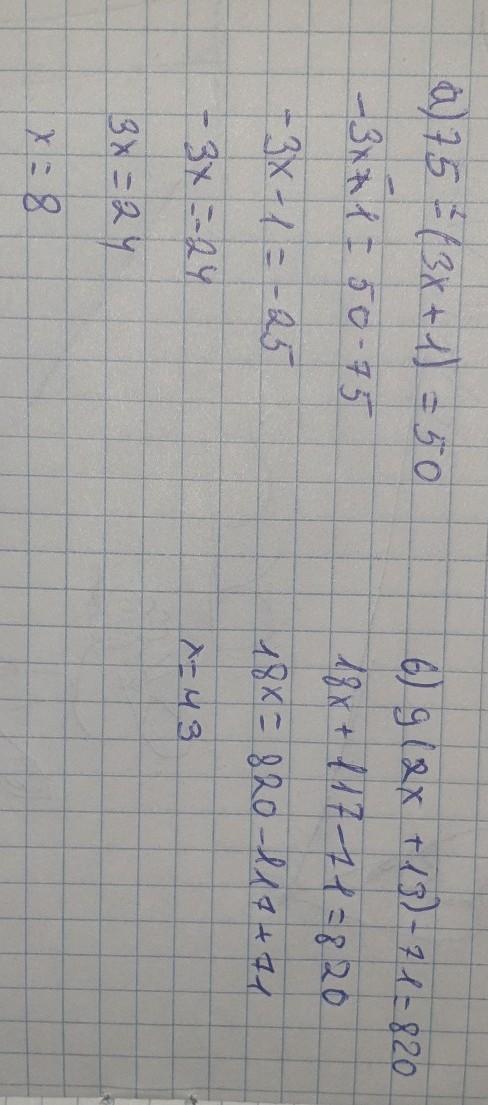 а) 75 - (3x + 1) = 50
-3x - 1 = 50 - 75
-3x - 1 = -25
-3x = -24
3x = 24
x = 8
б) 9(2x + 13) - 71 = 820
18x + 117 - 71 = 820
18x = 820 - 117 + 71
x = 43